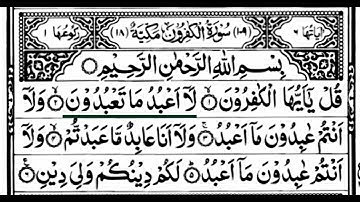 اٰیاتها ٦ (١٠٩) سُوْرَةُ الْكٰفِرُوْنَ مَكِّيَّةٌ (١٨) رکوعها ١
بِسْمِ اللهِ الرَّحْمٰنِ الرَّحِيْمِ
قُلْ يٰٓاَيُّهَا الْكٰفِرُوْنَ ۙ١ لَآ اَعْبُدُ مَا تَعْبُدُوْنَ ۙ٢ وَلَآ
اَنْتُمْ عٰبِدُوْنَ مَآ اَعْبُدُ ۚ٣ وَلَآ اَنَا عَابِدٌ مَّا عَبَدْتُّمْ ۙ٤ وَلَآ
اَنْتُمْ عٰبِدُوْنَ مَآ اَعْبُدُ ؕ٥ لَكُمْ دِيْنُكُمْ وَلِيَ دِيْنِ ٦